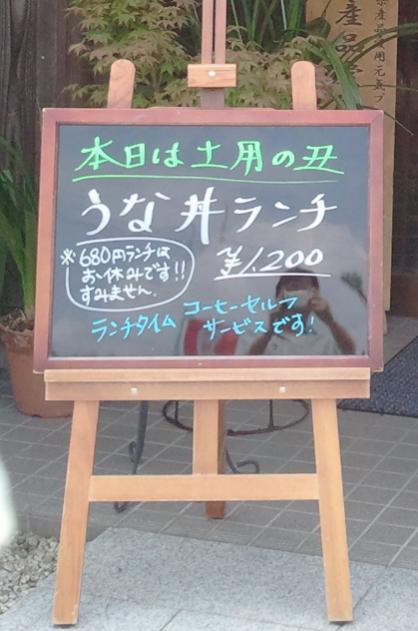 本日は土用の丑
うな丼ランチ
¥1,200
※680円ランチは
お休みです!!
すみません。
ランチタイム
コーヒーセルフ
サービスです!